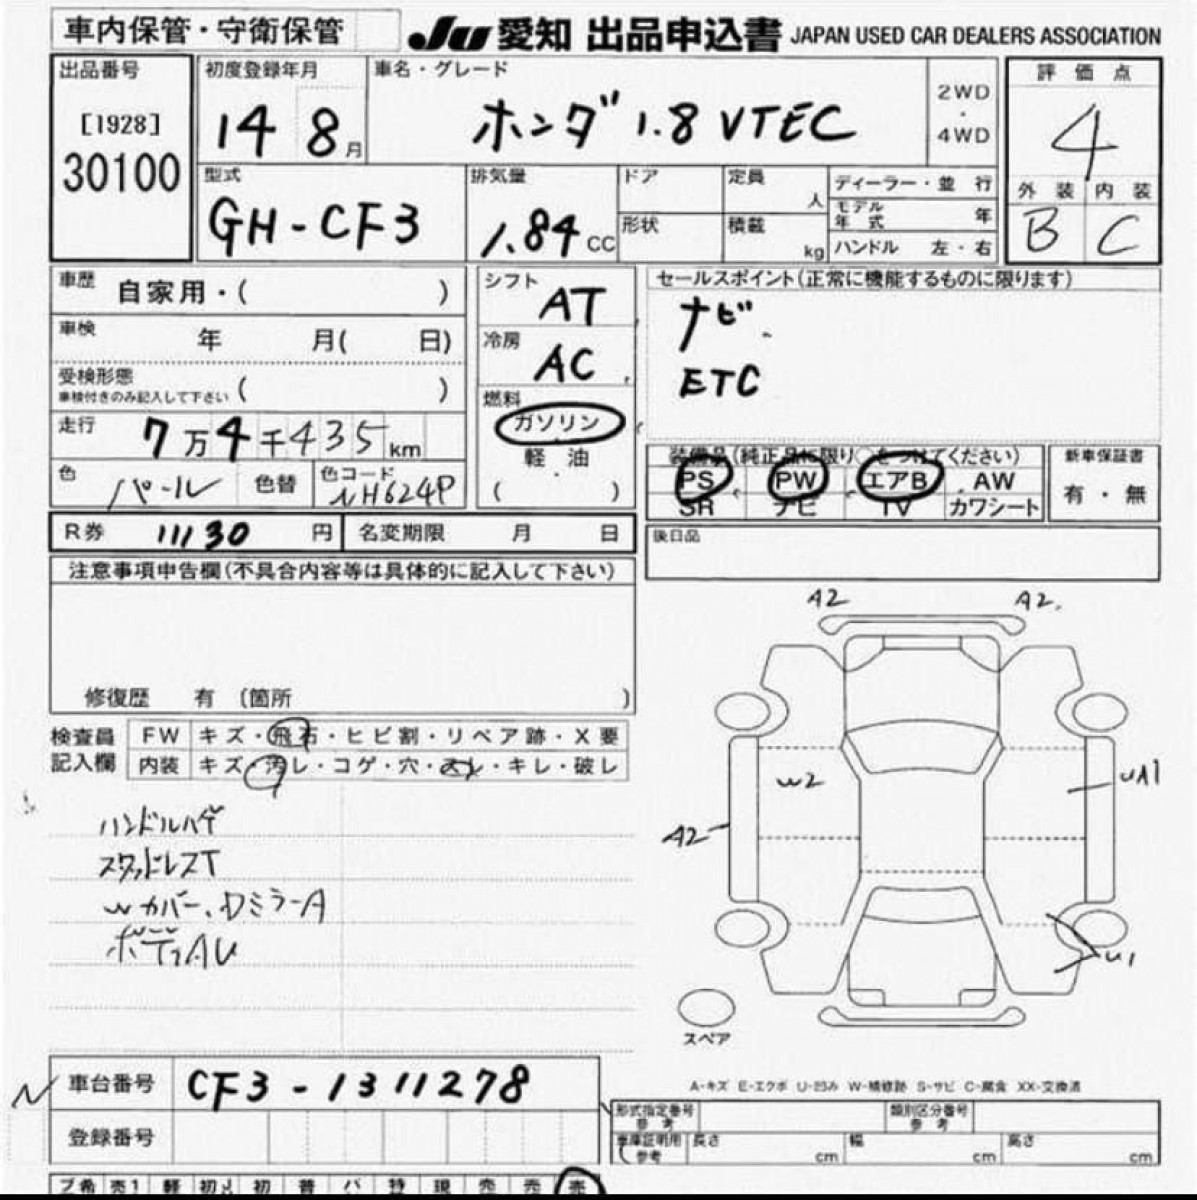 車内保管・守衛保管
JU 愛知 出品申込書 JAPAN USED CAR DEALERS ASSOCIATION
出品番号
[1928]
30100
初度登録年月
14 8月
車名・グレード
ホンダ 1.8 VTEC
2WD
・
4WD
評価点
4
外装 内装
B C
型式
GH-CF3
排気量
1.84 CC
ドア
形状
定員 人
積載 kg
ディーラー・並行
モデル年式 年
ハンドル 左・右
車歴 自家用・( )
車検 年 月( 日)
受検形態
車検付きのみ記入して下さい ( )
走行 7万4千435km
色 パール
色替
色コード NH624P
シフト AT
冷房 AC
燃料
ガソリン
軽油
( )
セールスポイント(正常に機能するものに限ります)
ナビ
ETC
装備品(純正品に限り○をつけてください)
PS PW エアB AW
SR ナビ TV カワシート
新車保証書
有・無
R券 11130 円
名変期限 月 日
後日品
注意事項申告欄(不具合内容等は具体的に記入して下さい)
修復歴 有 (箇所 )
検査員
記入欄
FW キズ・飛石・ヒビ割・リペア跡・X要
内装 キズ・汚レ・コゲ・穴・スレ・キレ・破レ
ハンドルハゲ
スタッドレスT
Wカバー、Dミラー A
ボディAU
A2 A2
W2
UA1
A2
U1
スペア
A-キズ E-エクボ U-凹み W-補修跡 S-サビ C-腐食 XX-交換済
車台番号 CF3-1311278
登録番号
形式指定番号
参考
類別区分番号
参考
車庫証明用
参考
長さ cm
幅 cm
高さ cm